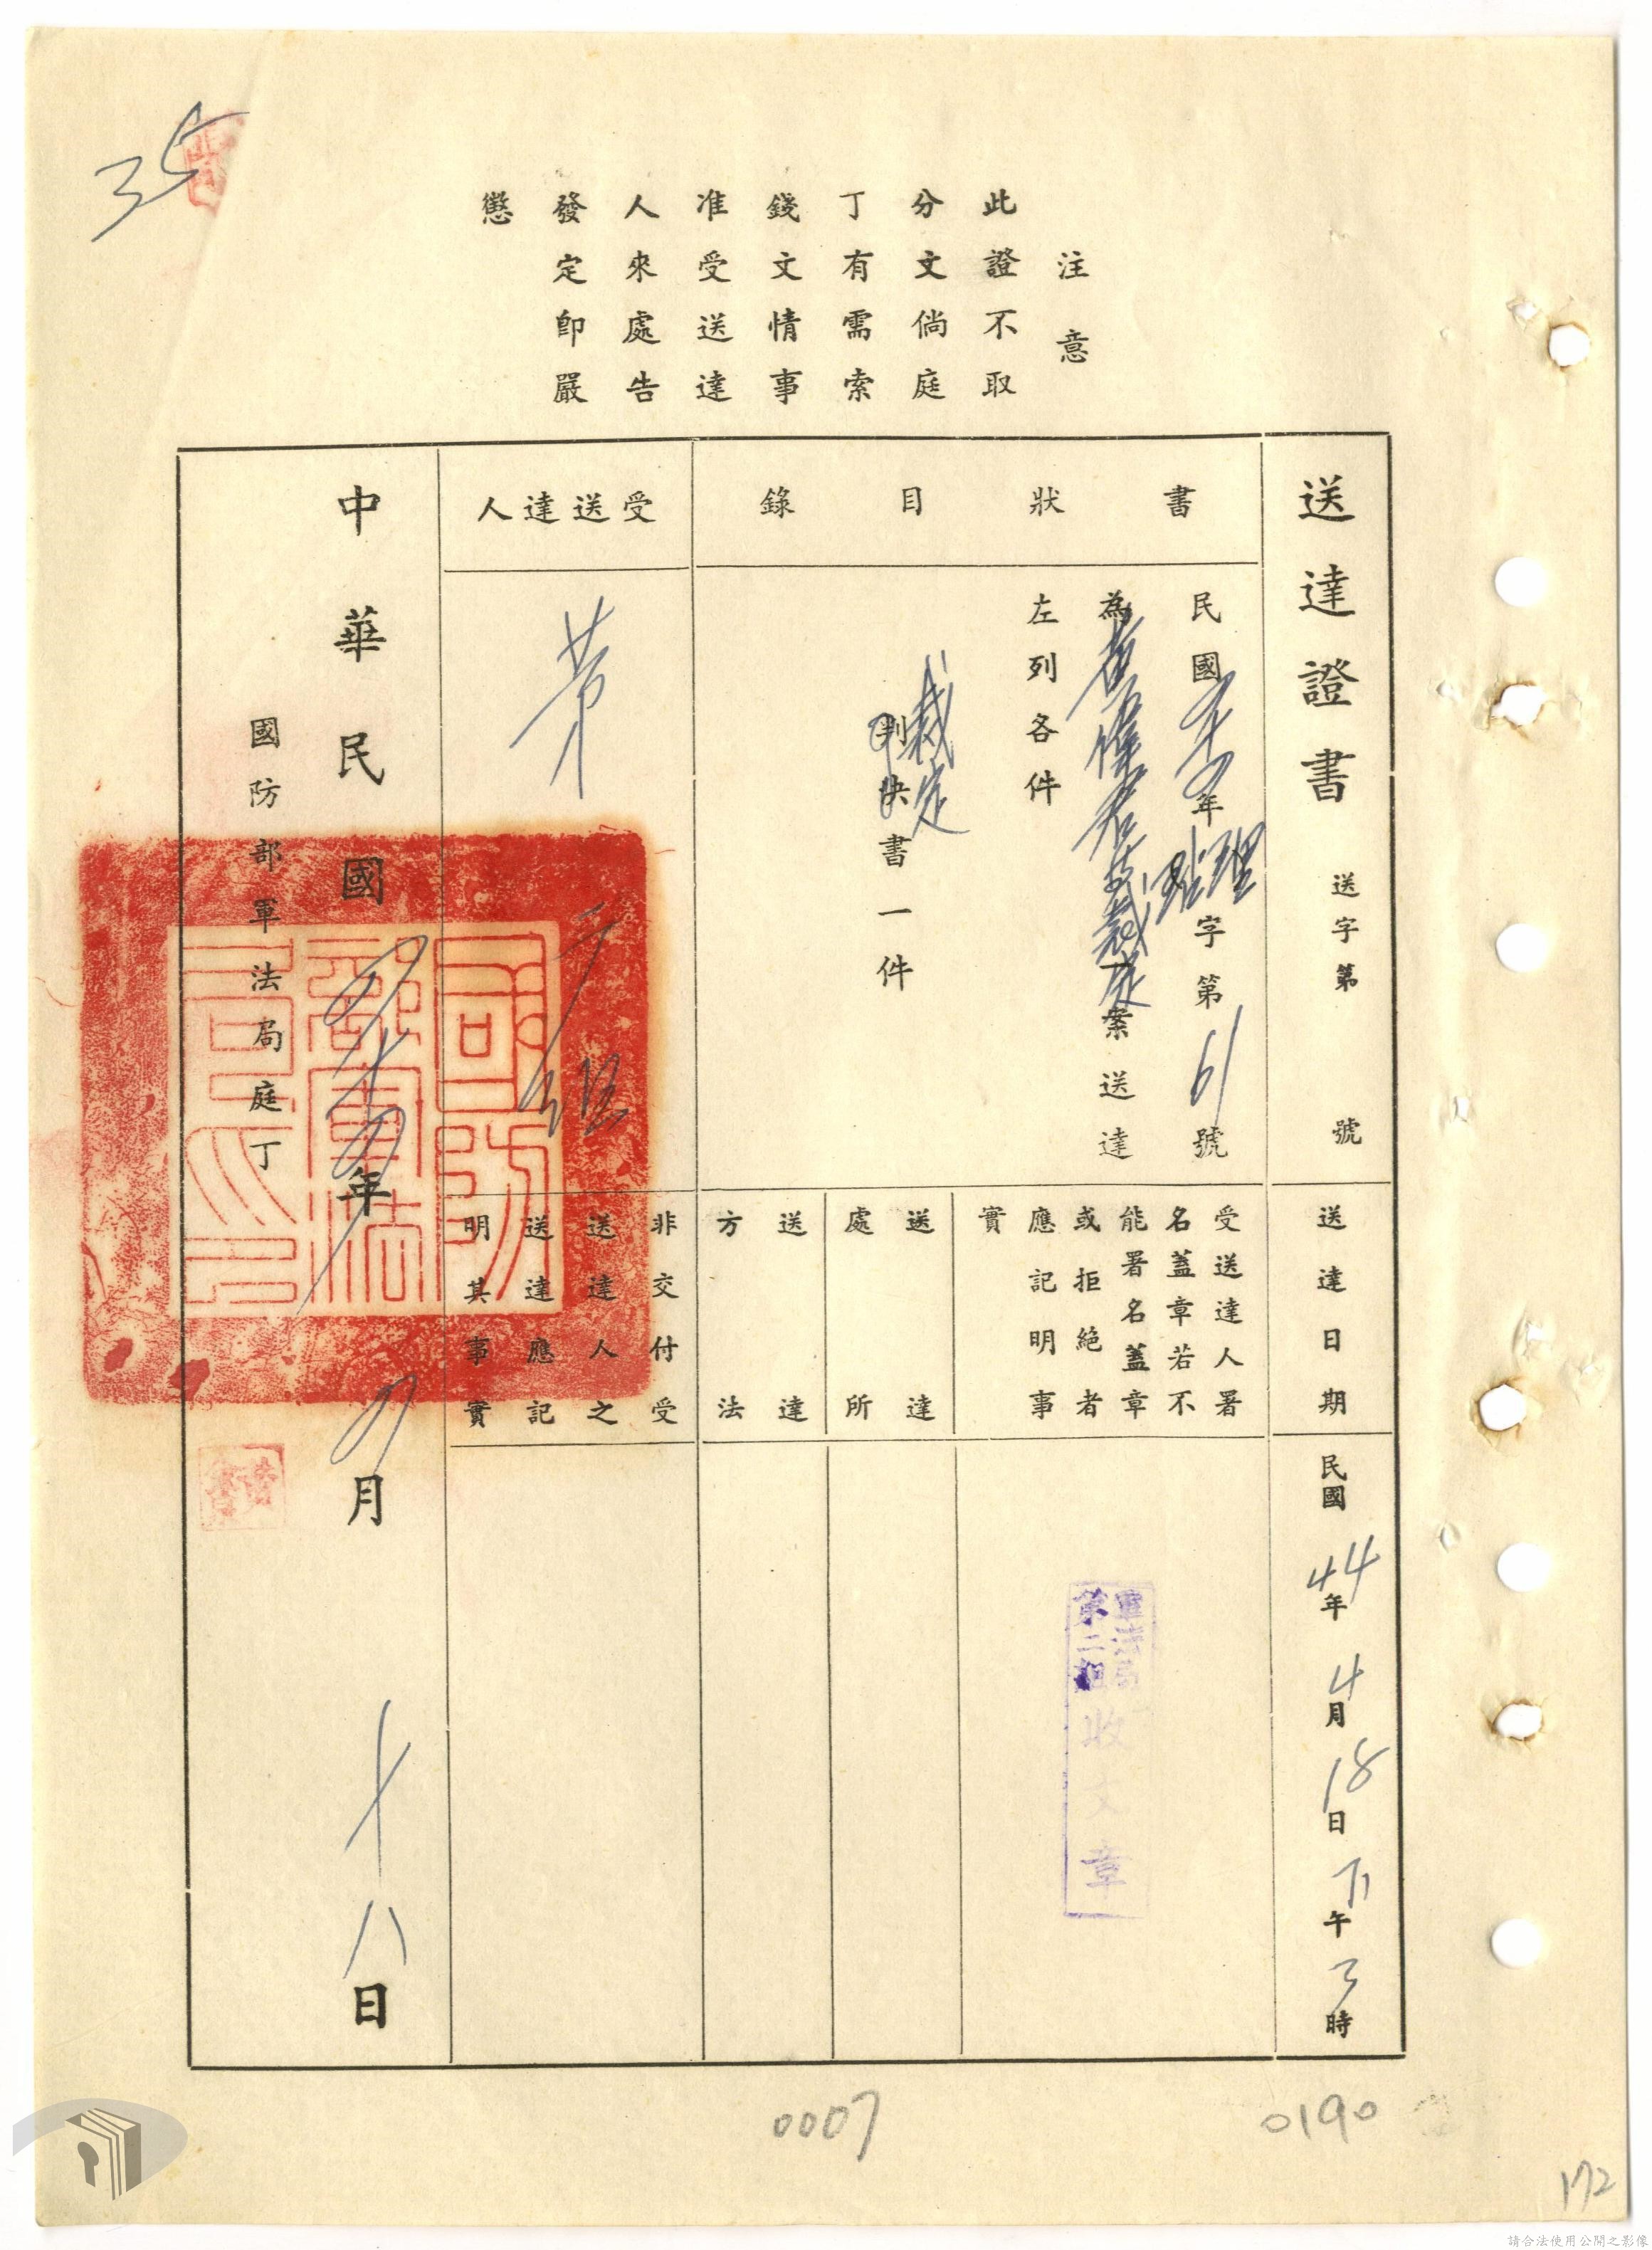 35
注意
此證不取
分文倘庭
丁有需索
錢文情事
准受送達
人來處告
發定即嚴
懲
送達證書 送字第 號
送達日期
民國44年4月18日下午3時
書狀目錄
民國 年 理 字第61號
為 裁定案送達
左列各件
裁定
判決書一件
受送達人署
名蓋章若不
能署名蓋章
或拒絕者
應記明事
實
軍法局
第二組
收文章
送達
處所
送達
方法
受送達人
第二組
非交付受
送達人之
送達應記
明其事實
中華民國四十四年四月十八日
國防部軍法局庭丁
0007
0190
172
請合法使用公開之影像